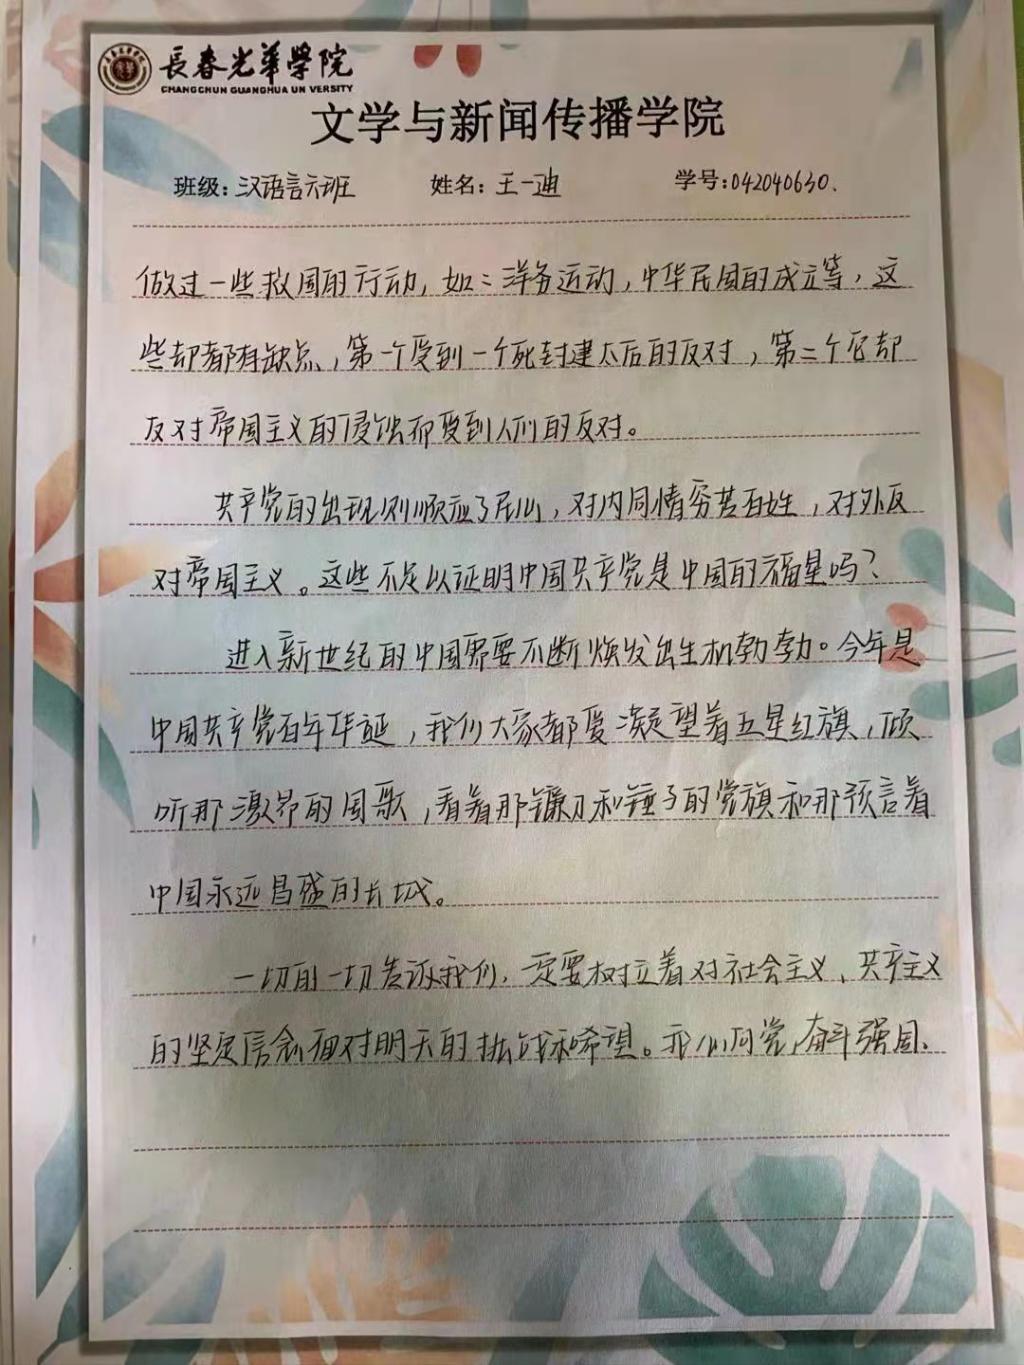 長春光華學院
CHANGCHUN GUANGHUA UN VERSITY
文学与新闻传播学院
班级:汉语言六班 姓名:王一迪 学号:042040630.
做过一些救国的行动,如:洋务运动,中华民国的成立等,这
些却都有缺点,第一个受到一个死封建太后的反对,第二个它却
反对帝国主义的侵蚀而受到人们的反对。
共产党的出现则顺应了民心,对内同情穷苦百姓,对外反
对帝国主义。这些不足以证明中国共产党是中国的福星吗?
进入新世纪的中国需要不断焕发出生机勃勃。今年是
中国共产党百年华诞,我们大家都要凝望着五星红旗,倾
听那激昂的国歌,看着那镰刀和锤子的党旗和那预言着
中国永远昌盛的长城。
一切的一切告诉我们,一定要树立着对社会主义、共产主义
的坚定信念面对明天的挑战和希望。我们同党,奋斗强国、